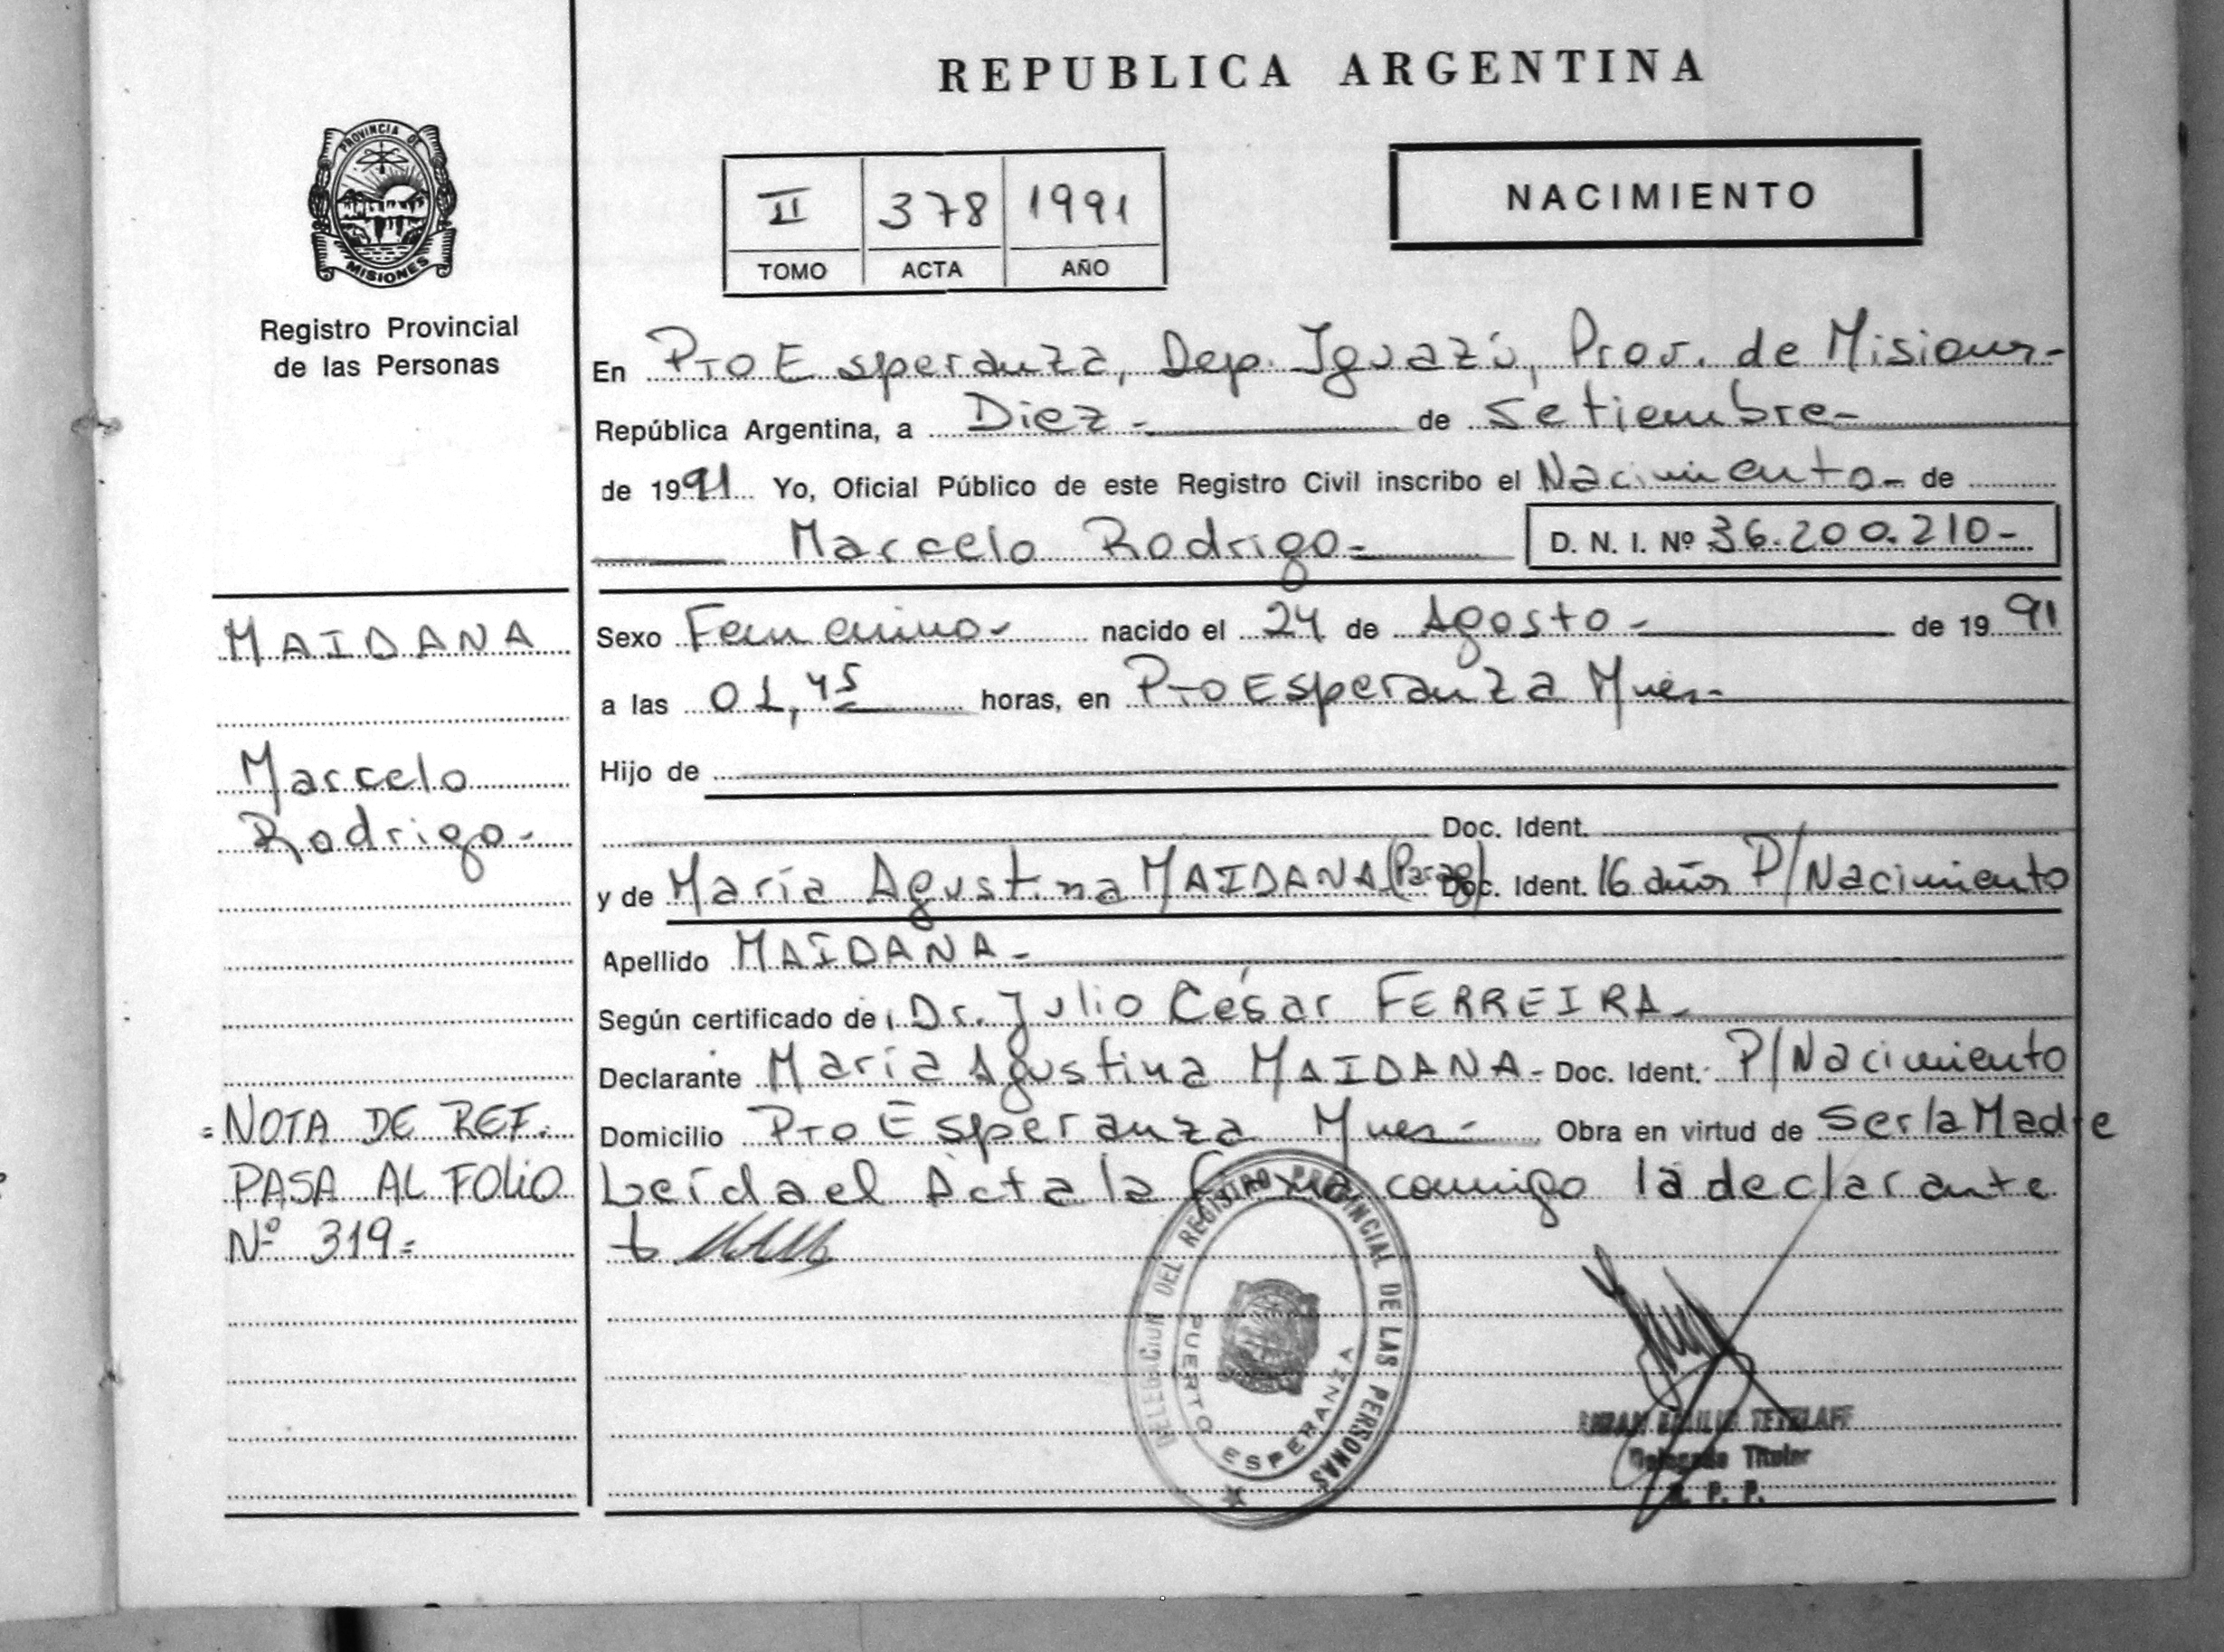 REPUBLICA ARGENTINA
PROVINCIA DE
MISIONES
Registro Provincial
de las Personas
II 378 1991
TOMO ACTA AÑO
NACIMIENTO
En Pto Esperanza, Dep. Iguazú, Prov. de Misiones-
República Argentina, a Diez - de Setiembre-
de 1991 Yo, Oficial Público de este Registro Civil inscribo el Nacimiento- de
Marcelo Rodrigo- D. N. I. Nº 36.200.210-
MAIDANA
Marcelo
Rodrigo-
Sexo Femenino- nacido el 24 de Agosto- de 1991
a las 01,45 horas, en Pto Esperanza Mnes-
Hijo de
Doc. Ident.
y de María Agustina MAIDANA (Parag) Doc. Ident. 16 años P/Nacimiento
Apellido MAIDANA-
Según certificado de Dr. Julio César FERREIRA-
Declarante María Agustina MAIDANA- Doc. Ident. P/Nacimiento
Domicilio Pto Esperanza Mnes- Obra en virtud de Ser la Madre
Leída el Acta la firma conmigo la declarante
=NOTA DE REF.
PASA AL FOLIO
Nº 319=
DELEGACION DEL REGISTRO PROVINCIAL DE LAS PERSONAS
PUERTO ESPERANZA
TETZLAFF
Delegado Titular
R. P. P.